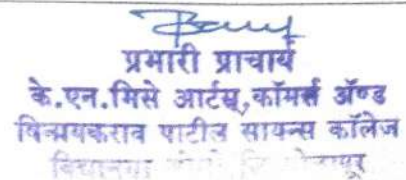 प्रभारी प्राचार्य
के.एन.भिसे आर्टस्,कॉमर्स ॲण्ड
विनायकराव पाटील सायन्स कॉलेज